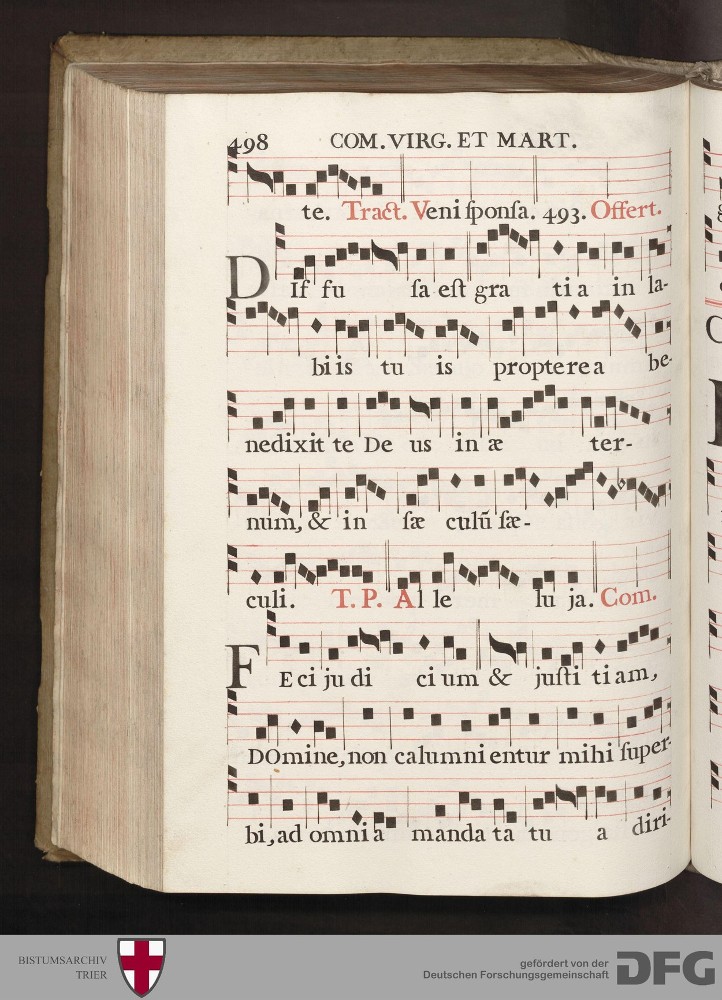 498 COM. VIRG. ET MART.
te. Tract. Veni ſponſa. 493. Offert.
DIf fu ſa eſt gra ti a in la-
bi is tu is propterea be-
nedixit te De us in æ ter-
num, & in ſæ culũ ſæ-
culi. T. P. Al le lu ja. Com.
FEci ju di ci um & juſti tiam,
DOmine, non calumni entur mihi ſuper-
bi, ad omni a manda ta tu a diri-
BISTUMSARCHIV
TRIER
gefördert von der
Deutschen Forschungsgemeinschaft
DFG